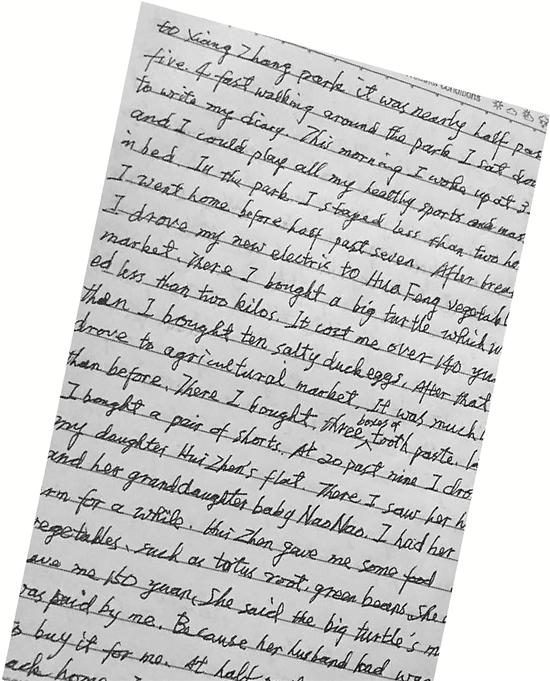 conditions
to Xiang Zhang park it was nearly half pas
five. A fast walking around the park I sat dow
to write my diary. This morning I woke up at 3.
and I could play all my healthy sports and mas
in bed. In the park I stayed less than two ho
I went home before half past seven. After brea
I drove my new electric to Hua Feng vegetabl
market. There I bought a big turtle which w
ed less than two kilos. It cost me over 140 yua
then I bought ten salty duck eggs. After that
drove to agricultural market. It was much
than before. There I bought three boxes of tooth paste. la
I bought a pair of shorts. At 20 past nine I dro
my daughter Hui Zhen's flat There I saw her h
and her granddaughter baby NaoNao. I had her
rm for a while. Hui Zhen gave me some food
vegetables, such as totus root, green beans. She
ave me 150 yuan. She said the big turtle's m
as paid by me. Because her husband had wa
buy it for me. At half
ack home. I